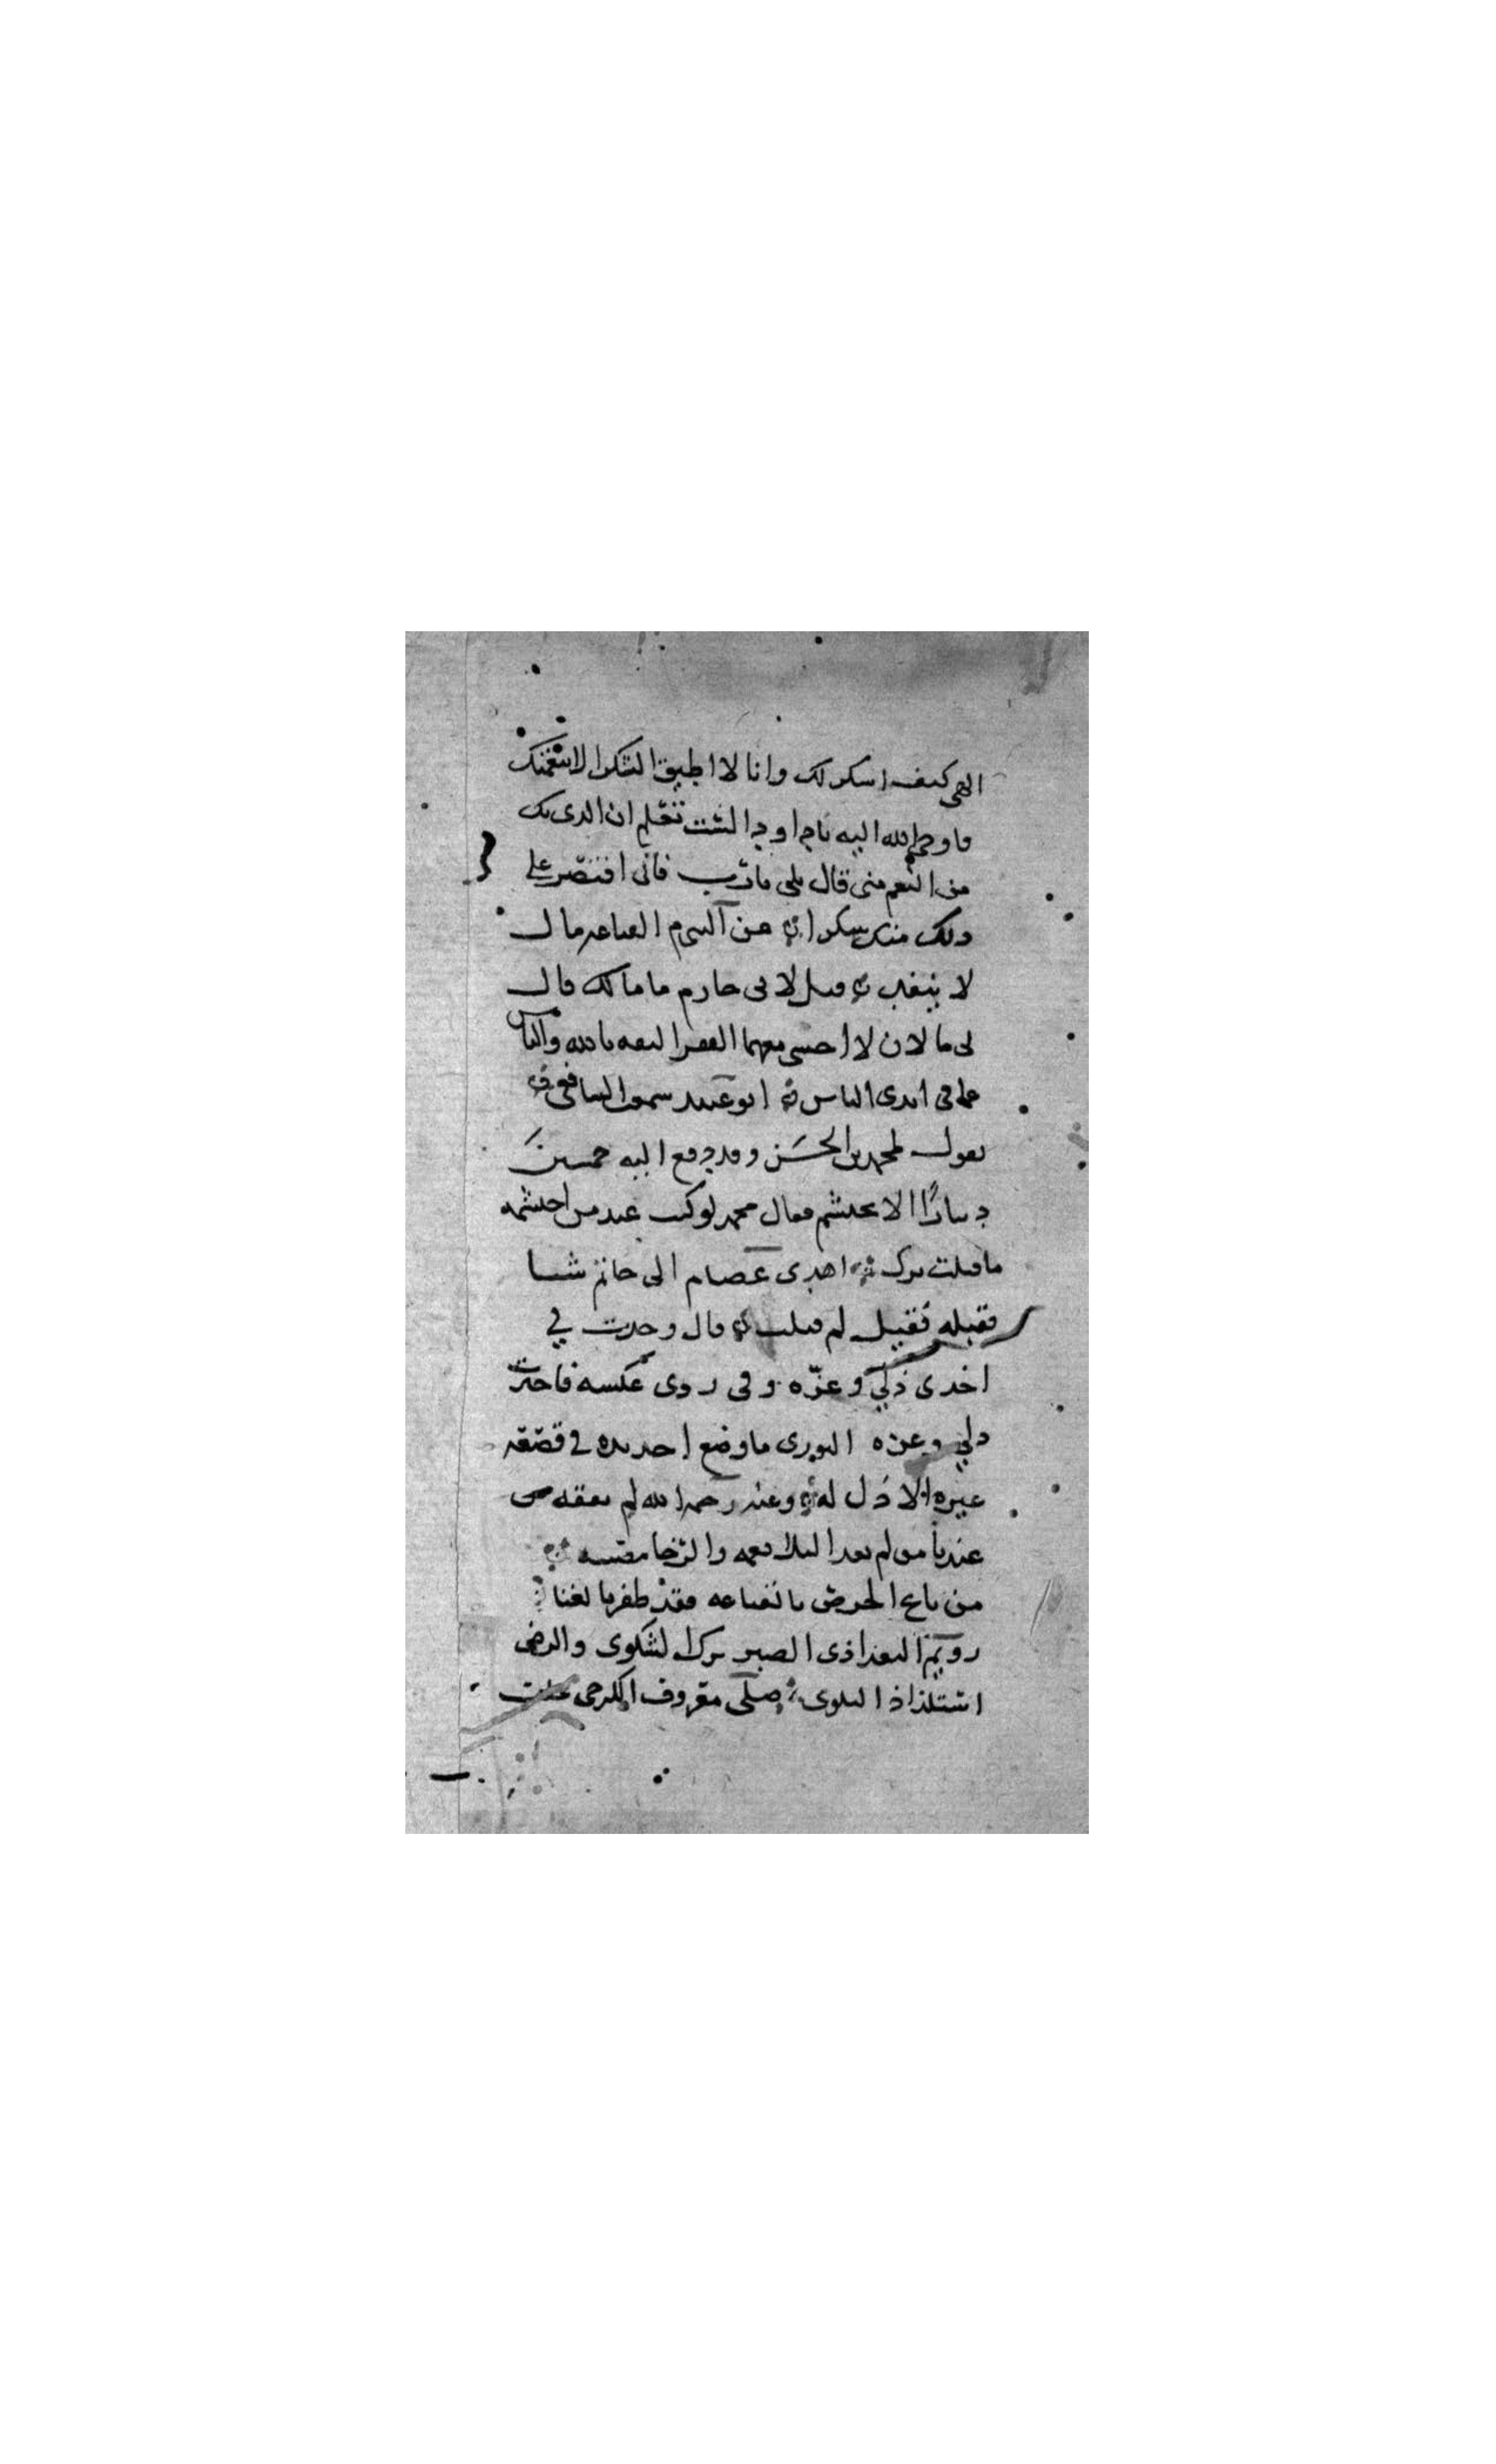 الهي كيف اشكر لك وانا لا اطيق الشكر الا بنعمتك
فاوحى الله اليه يا داود الست تعلم ان الذي بك
من النعم مني قال بلى يا رب فاني اقتصر على
ذلك منك شكرا عن النبي م القناعه مال
لا ينفد قيل لابي حازم ما مالك قال
لي مالان لا اخشى معهما الفقر الثقه بالله والياس
عما في ايدي الناس ابو عبيد سمعت الشافعي
يقول لمحمد بن الحسن وقد دفع اليه خمسين
دينارًا الا تحتشم فقال محمد لو كنت عندي من احتشمه
ما قبلت برك اهدى عصام الى حاتم شيا
فقبله فقيل لم قبلت قال وجدت في
اخذي ذلي وعزّه وفي ردي عكسه فاخترت
ذلي وعزه الثوري ما وضع احد يده في قصعه
غيره الا ذل له وعنه رحمه الله لم يفقه
عندنا من لم يعد البلا نعمه والرخا مصيبه
من باع الحرص بالقناعه فقد ظفر بالغنا
رويم البغداذي الصبر ترك الشكوى والرضى
استلذاذ البلوى صلى معروف الكرخي خلف